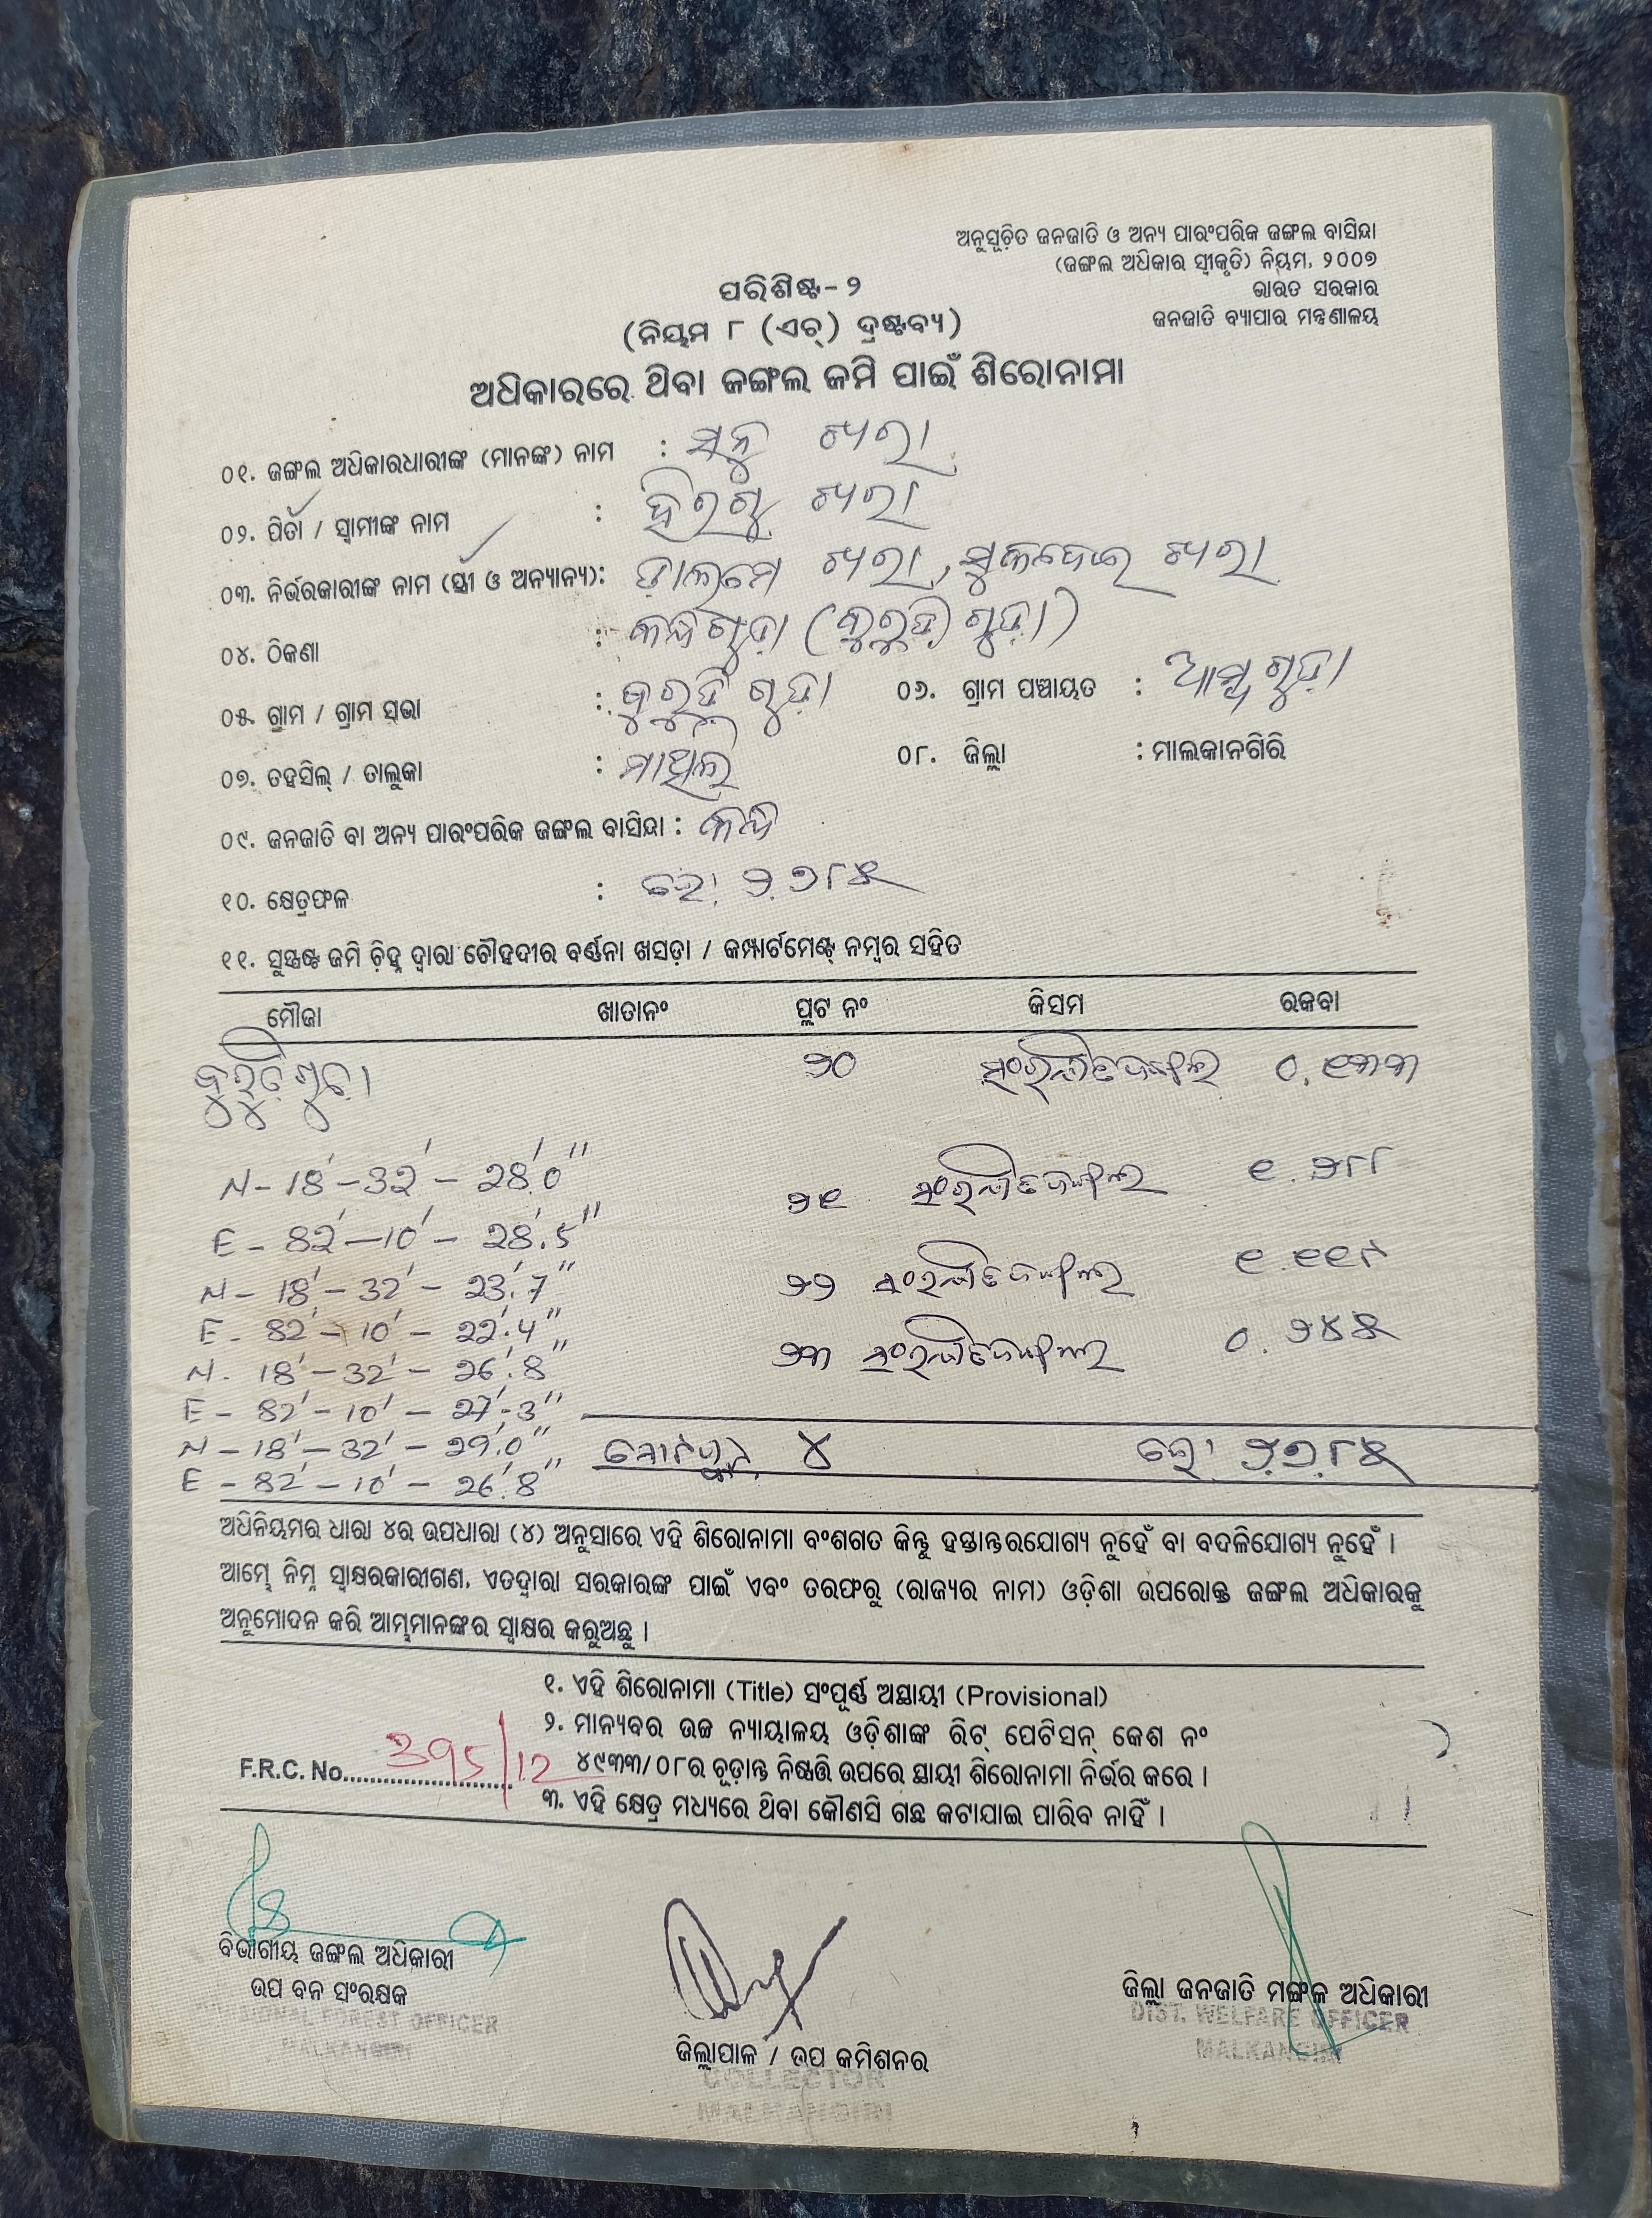 ଅନୁସୂଚିତ ଜନଜାତି ଓ ଅନ୍ୟ ପାରଂପରିକ ଜଙ୍ଗଲ ବାସିନ୍ଦା
(ଜଙ୍ଗଲ ଅଧିକାର ସ୍ୱୀକୃତି) ନିୟମ, ୨୦୦୭
ଭାରତ ସରକାର
ଜନଜାତି ବ୍ୟାପାର ମନ୍ତ୍ରଣାଳୟ
ପରିଶିଷ୍ଟ-୨
(ନିୟମ ୮ (ଏଚ୍) ଦ୍ରଷ୍ଟବ୍ୟ)
ଅଧିକାରରେ ଥିବା ଜଙ୍ଗଲ ଜମି ପାଇଁ ଶିରୋନାମା
୦୧. ଜଙ୍ଗଲ ଅଧିକାରଧାରୀଙ୍କ (ମାନଙ୍କ) ନାମ : ସନୁ ଖରା
୦୨. ପିତା / ସ୍ୱାମୀଙ୍କ ନାମ : ଖରା
୦୩. ନିର୍ଭରକାରୀଙ୍କ ନାମ (ସ୍ତ୍ରୀ ଓ ଅନ୍ୟାନ୍ୟ): ଡାଲମେ ଖରା, ସୁକଦେଇ ଖରା
୦୪. ଠିକଣା :
୦୫. ଗ୍ରାମ / ଗ୍ରାମ ସଭା : ୦୬. ଗ୍ରାମ ପଞ୍ଚାୟତ : ଆମ୍ବଗୁଡ଼ା
୦୭. ତହସିଲ୍ / ତାଲୁକା : ମାଥିଲି ୦୮. ଜିଲ୍ଲା : ମାଲକାନଗିରି
୦୯. ଜନଜାତି ବା ଅନ୍ୟ ପାରଂପରିକ ଜଙ୍ଗଲ ବାସିନ୍ଦା :
୧୦. କ୍ଷେତ୍ରଫଳ : ୨.୭୮୫
୧୧. ସୁସ୍ପଷ୍ଟ ଜମି ଚିହ୍ନ ଦ୍ୱାରା ଚୌହଦୀର ବର୍ଣ୍ଣନା ଖସଡ଼ା / କମ୍ପାର୍ଟମେଣ୍ଟ୍ ନମ୍ବର ସହିତ
ମୌଜା ଖାତାନଂ ପ୍ଲଟ ନଂ କିସମ ରକବା
୨୦ ସଂରକ୍ଷିତ ଜଙ୍ଗଲ ୦.୧୩୩
N- 18'-32'- 28'.0" ୨୧ ସଂରକ୍ଷିତ ଜଙ୍ଗଲ ୧.୨୮୮
E - 82'-10'- 28'.5"
N- 18'- 32'- 23'.7" ୨୨ ସଂରକ୍ଷିତ ଜଙ୍ଗଲ ୧.୧୧୯
E- 82'- 10'- 22'.4"
N- 18'-32'- 26'.8" ୨୩ ସଂରକ୍ଷିତ ଜଙ୍ଗଲ ୦.୨୪୫
E- 82'- 10'- 27'.3"
N- 18'- 32'- 29'.0" ୪ ୨.୭୮୫
E - 82'- 10'- 26'.8"
ଅଧିନିୟମର ଧାରା ୪ର ଉପଧାରା (୪) ଅନୁସାରେ ଏହି ଶିରୋନାମା ବଂଶଗତ କିନ୍ତୁ ହସ୍ତାନ୍ତରଯୋଗ୍ୟ ନୁହେଁ ବା ବଦଳିଯୋଗ୍ୟ ନୁହେଁ ।
ଆମ୍ଭେ ନିମ୍ନ ସ୍ୱାକ୍ଷରକାରୀଗଣ, ଏତଦ୍ୱାରା ସରକାରଙ୍କ ପାଇଁ ଏବଂ ତରଫରୁ (ରାଜ୍ୟର ନାମ) ଓଡ଼ିଶା ଉପରୋକ୍ତ ଜଙ୍ଗଲ ଅଧିକାରକୁ
ଅନୁମୋଦନ କରି ଆମ୍ଭମାନଙ୍କର ସ୍ୱାକ୍ଷର କରୁଅଛୁ ।
୧. ଏହି ଶିରୋନାମା (Title) ସଂପୂର୍ଣ୍ଣ ଅସ୍ଥାୟୀ (Provisional)
୨. ମାନ୍ୟବର ଉଚ୍ଚ ନ୍ୟାୟାଳୟ ଓଡ଼ିଶାଙ୍କ ରିଟ୍ ପେଟିସନ୍ କେଶ ନଂ
୪୯୩୩/୦୮ର ଚୂଡ଼ାନ୍ତ ନିଷ୍ପତ୍ତି ଉପରେ ସ୍ଥାୟୀ ଶିରୋନାମା ନିର୍ଭର କରେ ।
F.R.C. No. 395/12
୩. ଏହି କ୍ଷେତ୍ର ମଧ୍ୟରେ ଥିବା କୌଣସି ଗଛ କଟାଯାଇ ପାରିବ ନାହିଁ ।
ବିଭାଗୀୟ ଜଙ୍ଗଲ ଅଧିକାରୀ
ଉପ ବନ ସଂରକ୍ଷକ
DIVISIONAL FOREST OFFICER
MALKANGIRI
ଜିଲ୍ଲାପାଳ / ଉପ କମିଶନର
COLLECTOR
MALKANGIRI
ଜିଲ୍ଲା ଜନଜାତି ମଙ୍ଗଳ ଅଧିକାରୀ
DIST. WELFARE OFFICER
MALKANGIRI